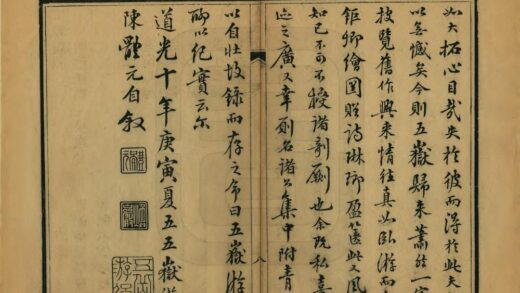 如大拓心目哉失於彼而得於此夫
以無憾矣今則五嶽歸來蕭然一室
披覽舊作興來情往真如臥游而
鉅卿繪圖贈詩琳瑯盈篋此又風
知己不可不授諸剞劂也余既私喜
迹之廣又幸列名諸公集中附青
八
以自壯故錄而存之命曰五嶽游
聊以紀實云爾
道光十年庚寅夏五五嶽游
陳體元自敘